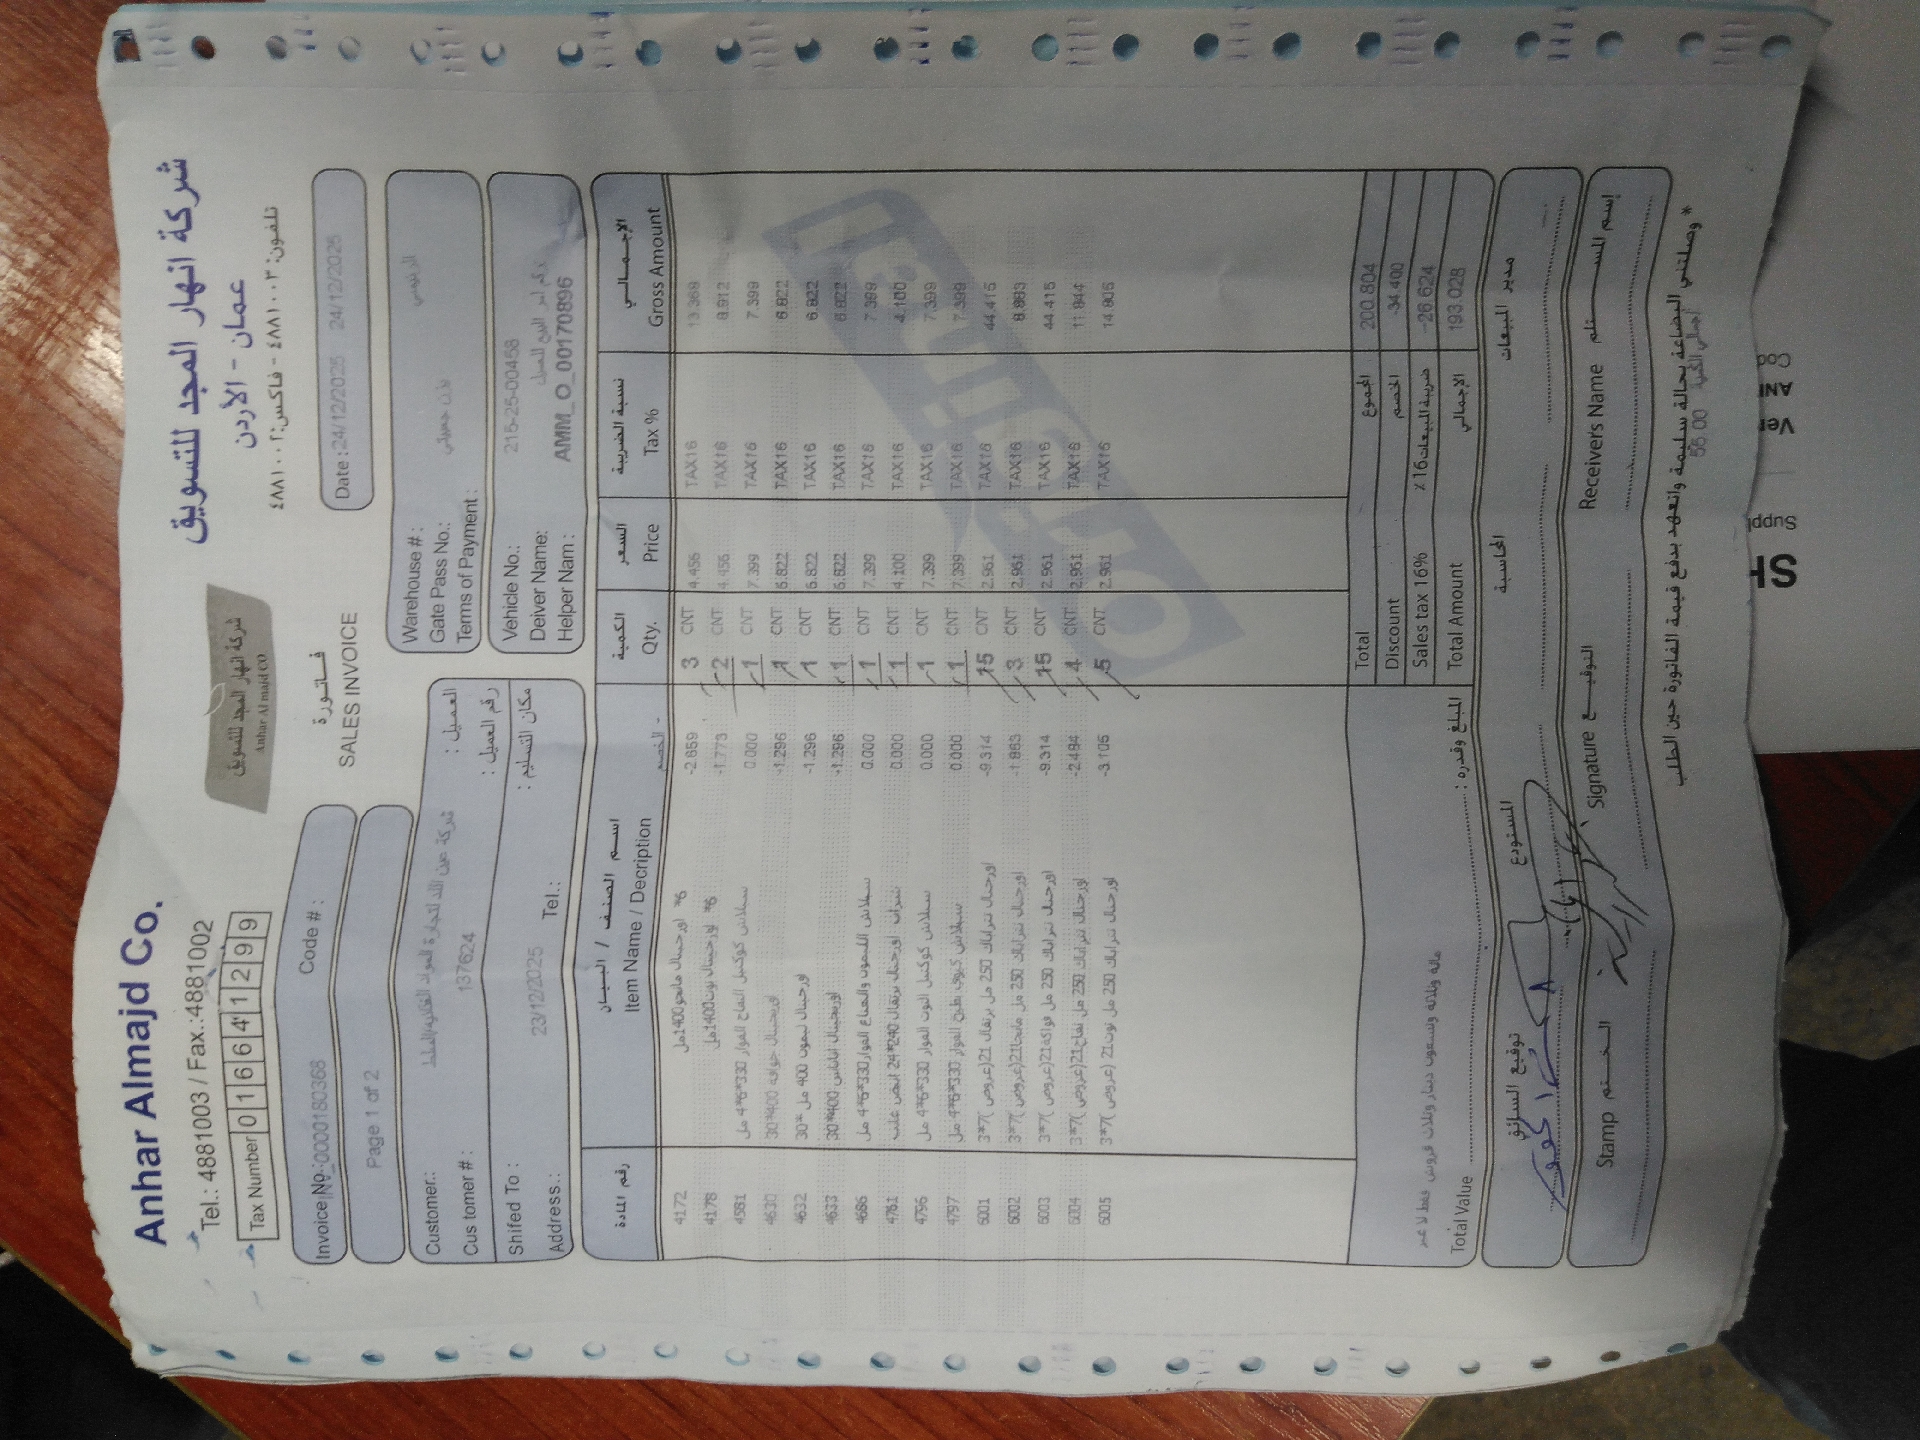 Anhar Almajd Co.
شركة انهار المجد للتسويق
عمان - الأردن
Tel.: 4881003 / Fax.:4881002
تلفون: ٤٨٨١٠٠٣ - فاكس: ٤٨٨١٠٠٢
Tax Number 016641299
شركة انهار المجد للتسويق
Anhar Al majd CO.
فــاتــورة
SALES INVOICE
Invoice No.: 0000180368 Code # :
Date : 24/12/2025 24/12/2025
Page 1 of 2
Warehouse # :
Gate Pass No.:
Terms of Payment :
Customer.: العميل :
Cus tomer # : 137624 رقم العميل :
Shifed To : مكان التسليم :
Address.: 23/12/2025 Tel.:
Vehicle No.: 215-25-00458
Deiver Name:
Helper Nam : AMM_O_00170896
رقم المادة اسم الصنف / البيان الخصم - الكمية السعر نسبة الضريبة الإجمــالــي
Item Name / Decription Qty. Price Tax % Gross Amount
4172 اورجينال مانجو 1400مل *6 -2.659 3 CNT 4.456 TAX16 13.368
4178 اورجينال توت1400مل *6 -1.773 2 CNT 4.456 TAX16 8.912
4581 سبلاش كوكتيل التفاح الفوار 330*6*4 مل 0.000 1 CNT 7.399 TAX16 7.399
4630 اورجينال جوافة 400*30 -1.296 1 CNT 6.822 TAX16 6.822
4632 اورجينال ليمون 400 مل *30 -1.296 1 CNT 6.822 TAX16 6.822
4633 اورجينال اناناس 400*30 -1.296 1 CNT 6.822 TAX16 6.822
4686 سبلاش الليمون والنعناع الفوار330*6*4 مل 0.000 1 CNT 7.399 TAX16 7.399
4761 شراب اورجينال برتقال 240*24 0.000 1 CNT 4.100 TAX16 4.100
4796 سبلاش كوكتيل التوت الفوار 330*6*4 مل 0.000 1 CNT 7.399 TAX16 7.399
4797 سبلاش كيوي بطيخ الفوار 330*6*4 مل 0.000 1 CNT 7.399 TAX16 7.399
5001 اورجينال تتراباك 250 مل برتقال 21(عروض )7*3 -9.314 15 CNT 2.961 TAX16 44.415
5002 اورجينال تتراباك 250 مل مانجا21(عروض )7*3 -1.863 3 CNT 2.961 TAX16 8.883
5003 اورجينال تتراباك 250 مل فواكه21(عروض )7*3 -9.314 15 CNT 2.961 TAX16 44.415
5004 اورجينال تتراباك 250 مل تفاح21(عروض )7*3 -2.484 4 CNT 2.961 TAX16 11.844
5005 اورجينال تتراباك 250 مل توت21 (عروض )7*3 -3.105 5 CNT 2.961 TAX16 14.805
Total المجموع 200.804
Discount الخصم -34.400
Sales tax 16% ضريبة المبيعات 16 ٪ 26.624
Total Amount الإجمالي 193.028
مائة وثلاثة وتسعون دينار وثلاث قروش فقط لا غير
Total Value المبلغ وقدره :
توقيع السائق المستودع المحاسبة مدير المبيعات
Stamp الخـتـم Signature التوقيـــع Receivers Name إسم المســـتلم
* وصلتني البضاعة بحالة سليمة واتعهد بدفع قيمة الفاتورة حين الطلب
إجمالي الكمية 55.00
Suppl